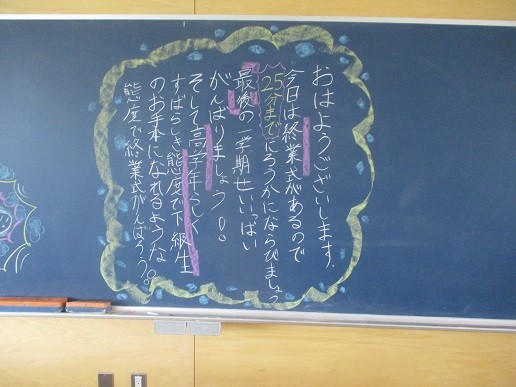 おはようございします。
今日は終業式があるので
25分までにろうかにならびましょう
最後の一学期せいいっぱい
がんばりましょう!!
そして高学年らしく
すばらしき態度で下級生
のお手本になれるような
態度で終業式がんばろう!!